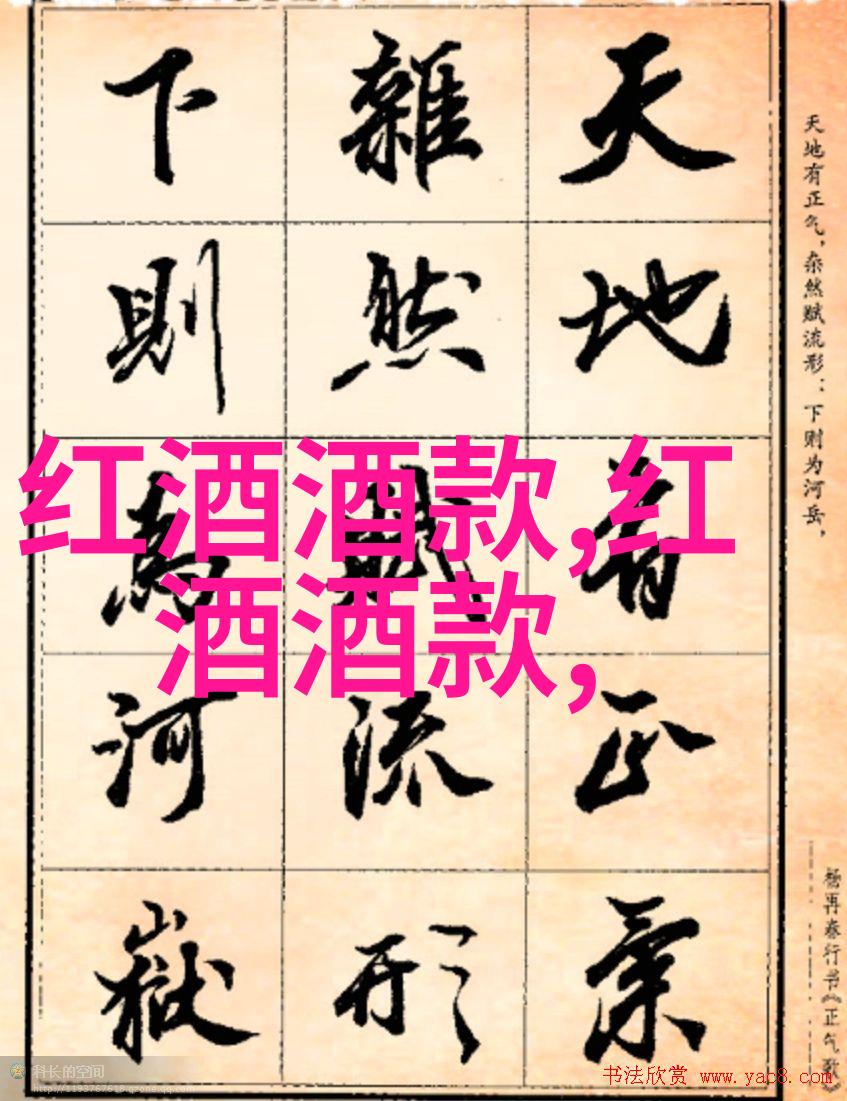 天地有正氣
雜然賦流形
下則為河嶽
天地有正气，杂然赋流形；下则为河岳，
杨再春行书《正气歌》
红酒酒款,红
酒酒款,
科长的空间
http://1193767618.qzone.qq.com
书法欣赏 www.yac8.com